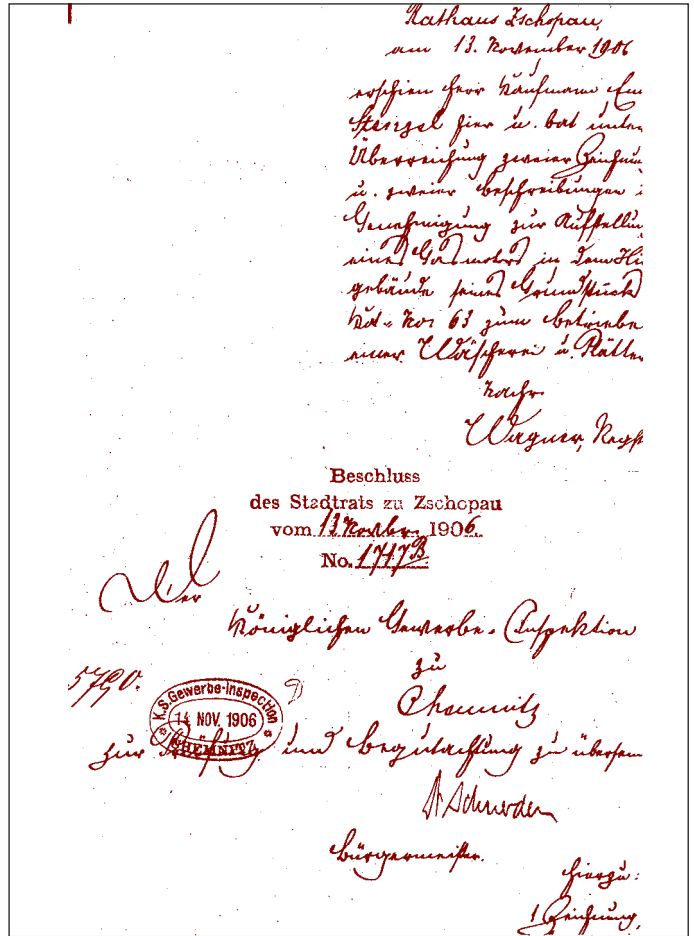 Rathaus Zschopau,
am 13. November 1906
erschien Herr Kaufmann Em
Stenzel hier u. bat unter
Überreichung zweier Zeichnun
u. zweier Beschreibungen
Genehmigung zur Aufstellun
eines Gasmotors in dem Hi
gebäude seines Grundstücks
Kat.-No: 63 zum Betriebe
einer Wäscherei u. Plätte
Nachr.
Wagner, Regst
Beschluss
des Stadtrats zu Zschopau
vom 13. Novbr. 1906.
No. 1717B
Der
Königlichen Gewerbe-Inspektion
zu
5790.
Chemnitz
K.S. Gewerbe-Inspection
14 NOV. 1906
CHEMNITZ
zur Prüfung und Begutachtung zu übersen
Bürgermeister.
Hierzu:
1 Zeichnung,